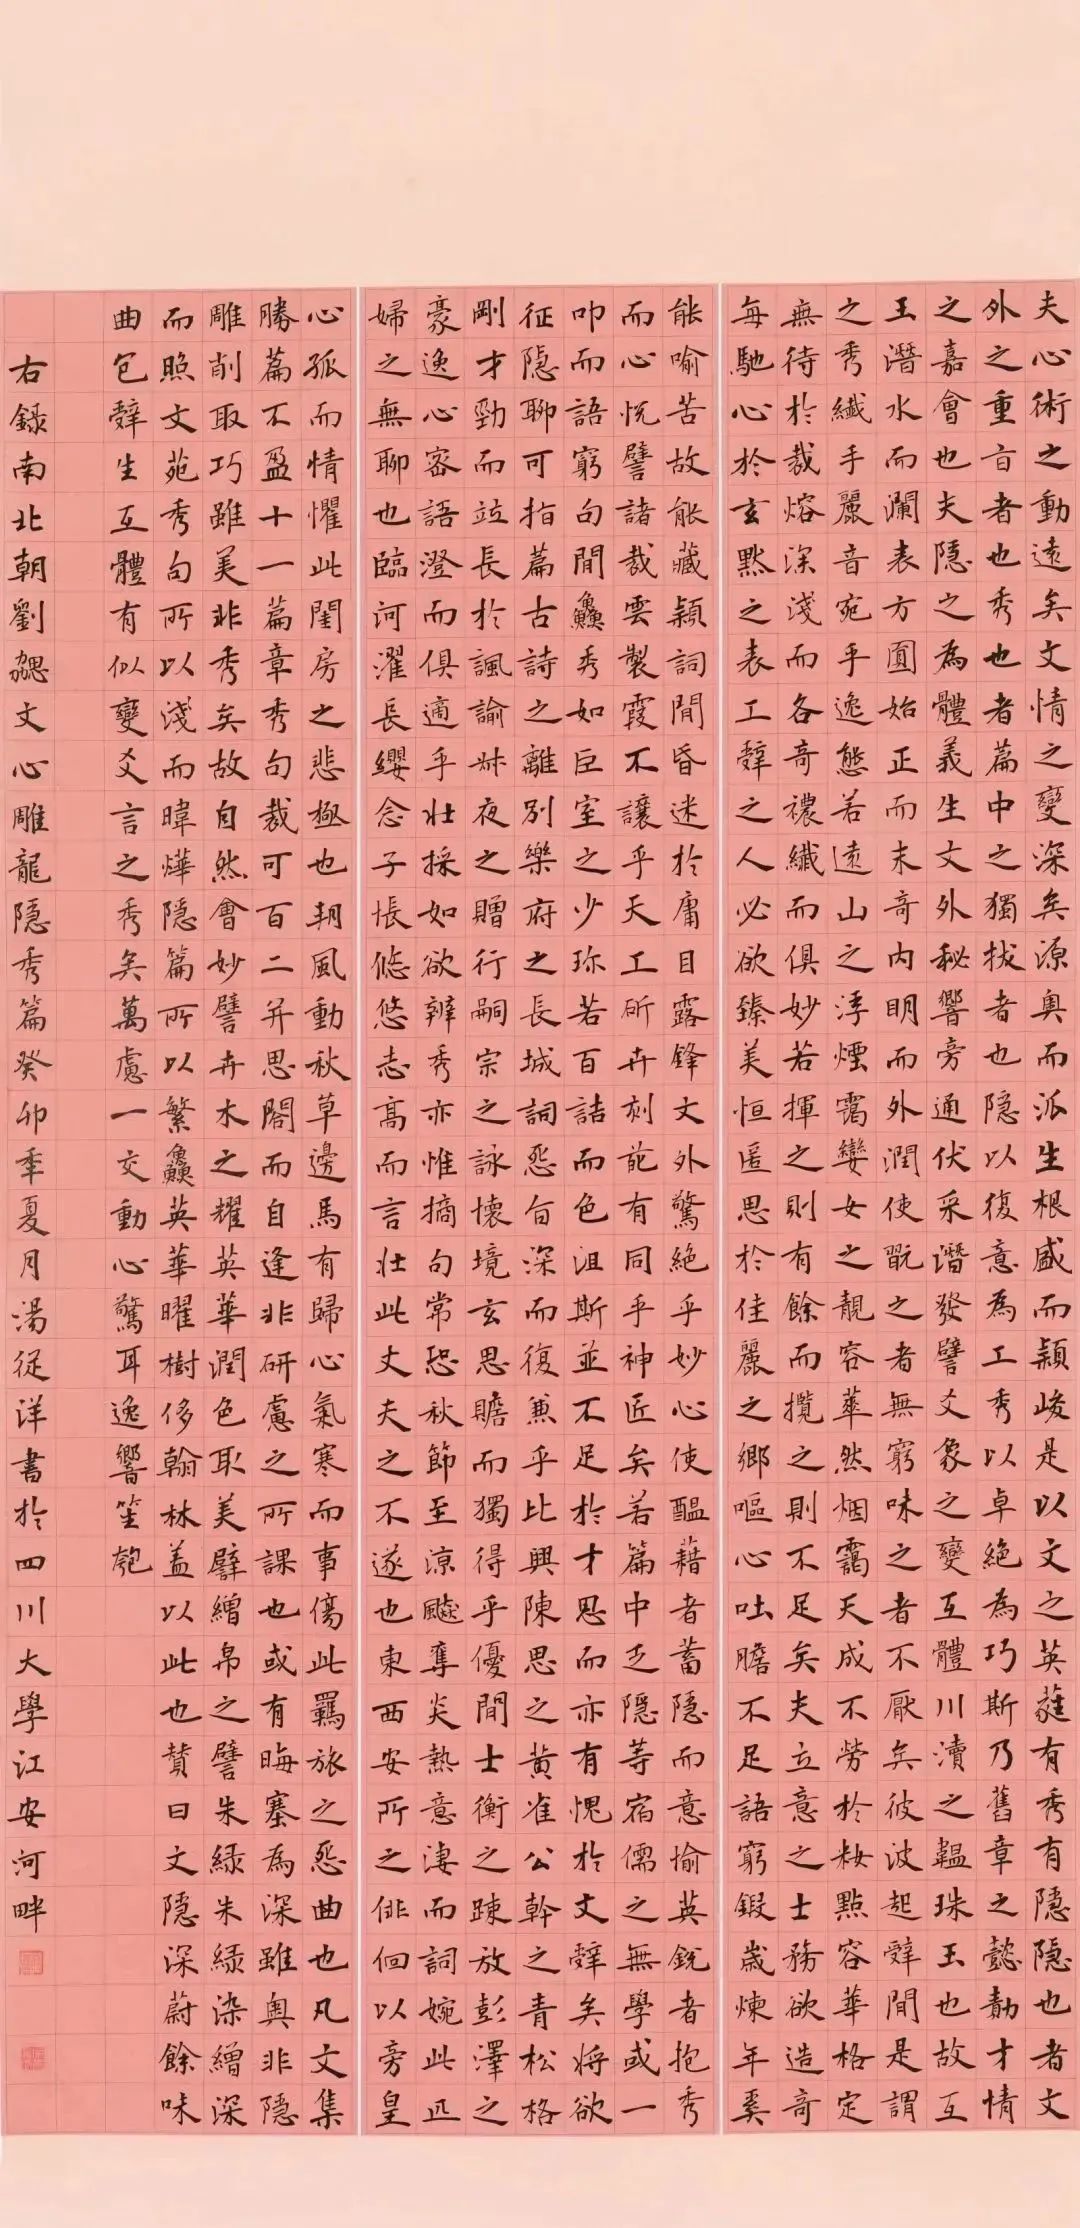 夫心術之動遠矣文情之變深矣源奧而派生根盛而穎峻是以文之英蕤有秀有隱隱也者文
外之重旨者也秀也者篇中之獨拔者也隱以復意為工秀以卓絕為巧斯乃舊章之懿勣才情
之嘉會也夫隱之為體義生文外秘響旁通伏采潛發譬爻象之變互體川瀆之韞珠玉也故互
王潛水而瀾表方圓始正而末奇內明而外潤使翫之者無窮味之者不厭矣彼波起辭間是謂
之秀纖手麗音宛乎逸態若遠山之浮煙靄孌女之靚容華然烟靄天成不勞於妝點容華格定
無待於裁熔深淺而各奇禯纖而俱妙若揮之則有餘而攬之則不足矣夫立意之士務欲造奇
每馳心於玄默之表工辭之人必欲臻美恒匿思於佳麗之鄉嘔心吐膽不足語窮鍛歲煉年奚
能喻苦故能藏穎詞間昏迷於庸目露鋒文外驚絕乎妙心使醞藉者蓄隱而意愉英銳者抱秀
而心悅譬諸裁雲製霞不讓乎天工斫卉刻葩有同乎神匠矣若篇中乏隱等宿儒之無學或一
叩而語窮句間鱻秀如巨室之少珍若百詰而色沮斯並不足於才思而亦有愧於文辭矣將欲
征隱聊可指篇古詩之離別樂府之長城詞怨旨深而復兼乎比興陳思之黃雀公幹之青松格
剛才勁而竝長於諷諭叔夜之贈行嗣宗之詠懷境玄思贍而獨得乎優間士衡之疎放彭澤之
豪逸心密語澄而俱適乎壯採如欲辨秀亦惟摘句常恐秋節至涼飈奪炎熱意淒而詞婉此匹
婦之無聊也臨河濯長纓念子悵悠悠志高而言壯此丈夫之不遂也東西安所之徘徊以旁皇
心孤而情懼此閨房之悲極也朔風動秋草邊馬有歸心氣寒而事傷此羈旅之怨曲也凡文集
勝篇不盈十一篇章秀句裁可百二并思閤而自逢非研慮之所課也或有晦塞為深雖奧非隱
雕削取巧雖美非秀矣故自然會妙譬卉木之耀英華潤色取美譬繒帛之譬朱綠朱綠染繒深
而照文苑秀句所以淺而暐燁隱篇所以繁鱻英華曜樹侈翰林蓋以此也贊曰文隱深蔚餘味
曲包辭生互體有似變爻言之秀矣萬慮一交動心驚耳逸響笙匏
右錄南北朝劉勰文心雕龍隱秀篇癸卯年夏月湯從洋書於四川大學江安河畔